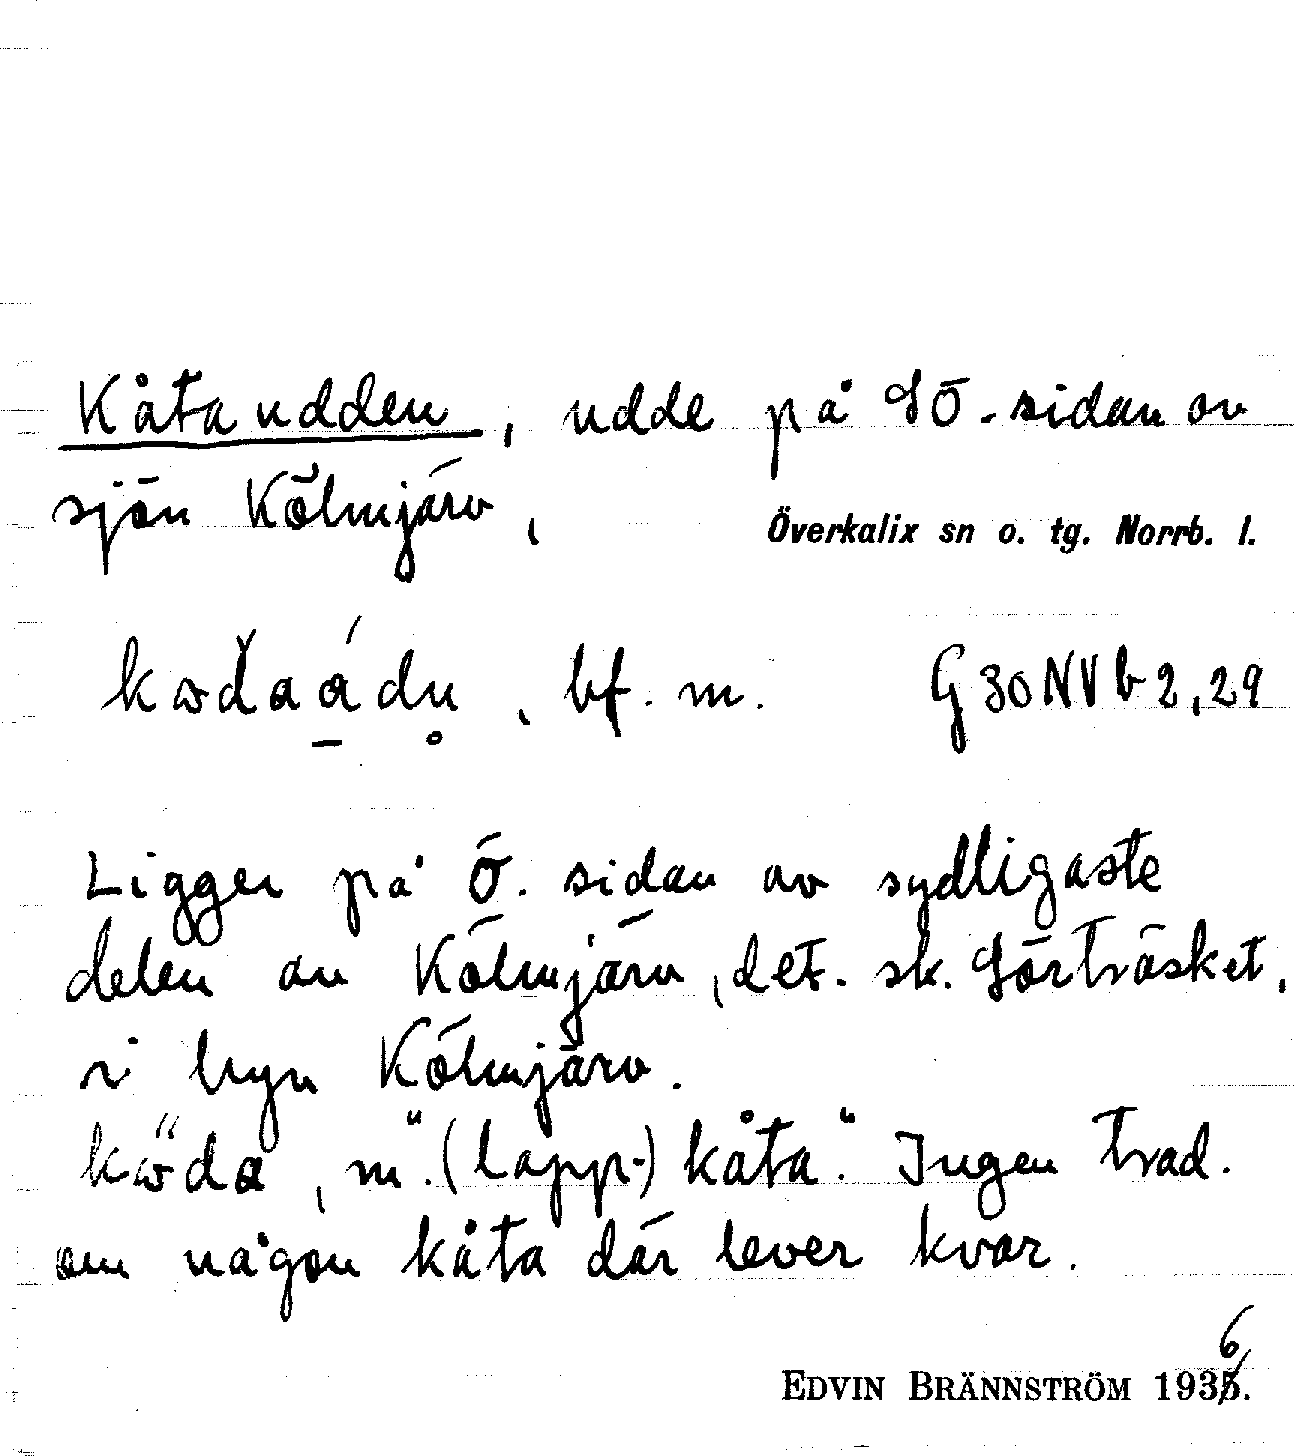 Kåtaudden, udde på SÖ-sidan av
sjön Kölmjärv,
Överkalix sn o. tg. Norrb. l.
bf. m. G 30 NV b 2,29
Ligger på Ö. sidan av sydligaste
delen av Kölmjärv, det s.k. Sörträsket,
i byn Kölmjärv.
m. "(lapp-) kåta". Ingen trad.
om någon kåta där lever kvar.
6
EDVIN BRÄNNSTRÖM 1935.